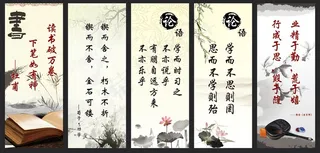 读书破万卷
下笔如有神
杜甫
锲而舍之，朽木不折
锲而不舍，金石可镂
论
语
学而时习之
不亦说乎
有朋自远方来
不亦乐乎
论
语
学而不思则罔
思而不学则殆
业精于勤 荒于嬉
行成于思 毁于随